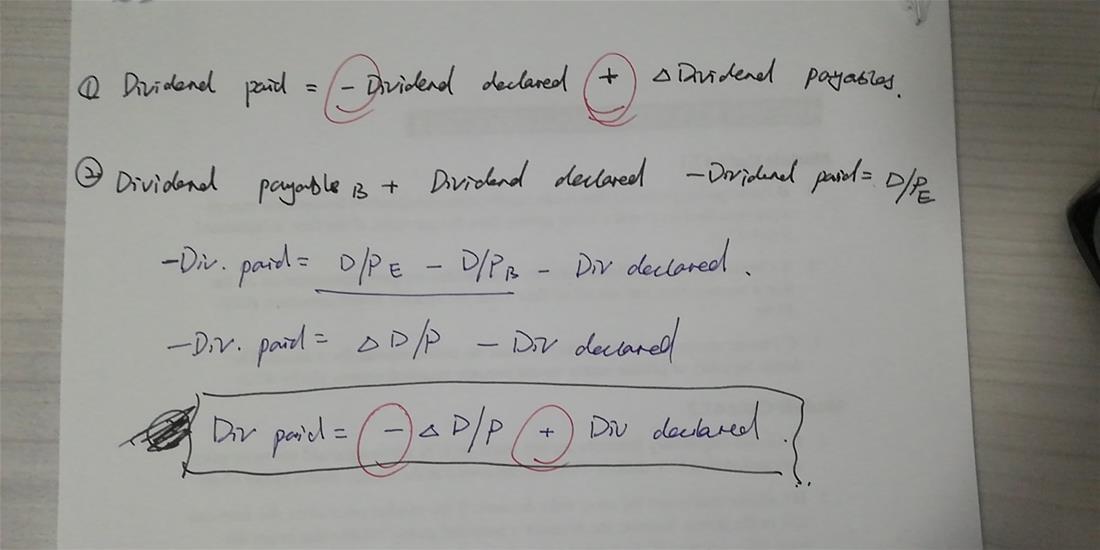 ① Dividend paid = - Dividend declared + △ Dividend payables.
② Dividend payable B + Dividend declared - Dividend paid = D/P E
-Div. paid = D/P E - D/P B - Div declared.
-Div. paid = △ D/P - Div declared
Div paid = - △ D/P + Div declared.